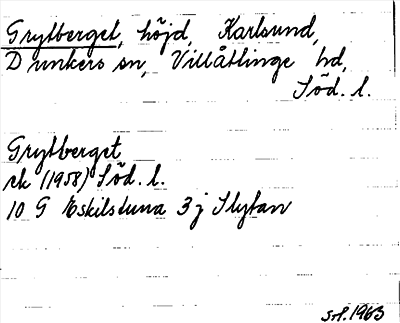 Grytberget, höjd, Karlsund,
Dunkers sn, Villåttinge hd,
Söd. l.
Grytberget
rk (1958) Söd. l.
10 G Eskilstuna 3 j Slytan
S.H. 1963